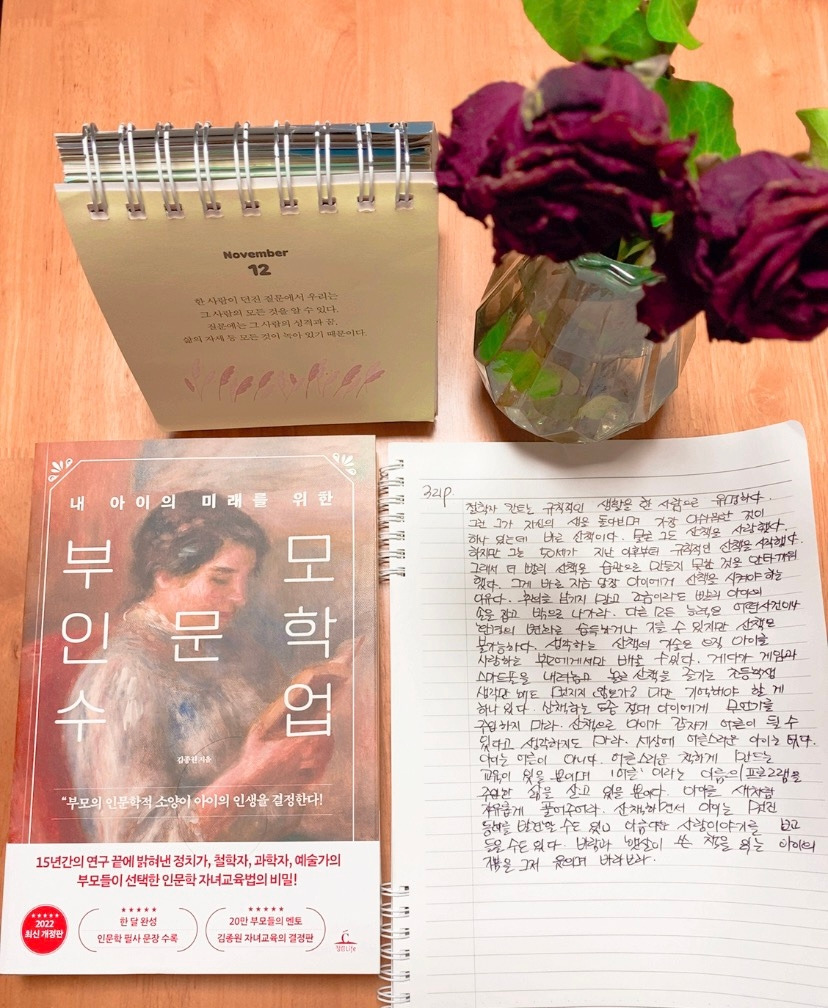 November
12
한 사람이 던진 질문에서 우리는
그 사람의 모든 것을 알 수 있다.
질문에는 그 사람의 성격과 꿈,
삶의 자세 등 모든 것이 녹아 있기 때문이다.
내 아이의 미래를 위한
부 모
인 문 학
수 업
김종원 지음
“부모의 인문학적 소양이 아이의 인생을 결정한다!
15년간의 연구 끝에 밝혀낸 정치가, 철학자, 과학자, 예술가의
부모들이 선택한 인문학 자녀교육법의 비밀!
★★★★★
2022
최신 개정판
★★★★★
한 달 완성
인문학 필사 문장 수록
★★★★★
20만 부모들의 멘토
김종원 자녀교육의 결정판
청림Life
321p.
철학자 칸트는 규칙적인 생활을 한 사람으로 유명하다.
그런 그가 자신의 생을 돌아보며 가장 아쉬워한 것이
하나 있는데 바로 산책이다. 물론 그도 산책을 사랑했다.
하지만 그는 50세가 지난 이후부터 규칙적인 산책을 시작했다.
그래서 더 빨리 산책을 습관으로 만들지 못한 것을 안타까워
했다. 그게 바로 지금 당장 아이에게 산책을 시켜야 하는
이유다. 후회를 남기지 말고 조금이라도 빨리 아이의
손을 잡고 밖으로 나가라. 다른 모든 능력은
환경의 변화로 습득하거나 기를 수 있지만 산책은
불가능하다. 생각하는 산책의 기술은 오직 아이를
사랑하는 부모에게서만 배울 수 있다. 게다가 게임과
스마트폰을 내려놓고 홀로 산책을 즐기는 초등학생
생각만 해도 멋지지 않은가? 다만 기억해야 할 게
하나 있다. 산책하는 도중 절대 아이에게 무언가를
주입하지 마라. 산책으로 아이가 갑자기 어른이 될 수
있다고 생각하지도 마라. 세상에 어른스러운 아이는 없다.
아이는 어른이 아니다. 어른스러운 척하게 만드는
교육이 있을 뿐이며 '어른' 이라는 이름의 프로그램을
주입한 삶을 살고 있을 뿐이다. 아이를 새처럼
자유롭게 풀어주어라. 산책하면서 아이는 멋진
동화를 발견할 수도 있고 아름다운 사랑이야기를 보고
들을 수도 있다. 바람과 햇살이 쓴 책을 읽는 아이의
지성을 그저 웃으며 바라보라.